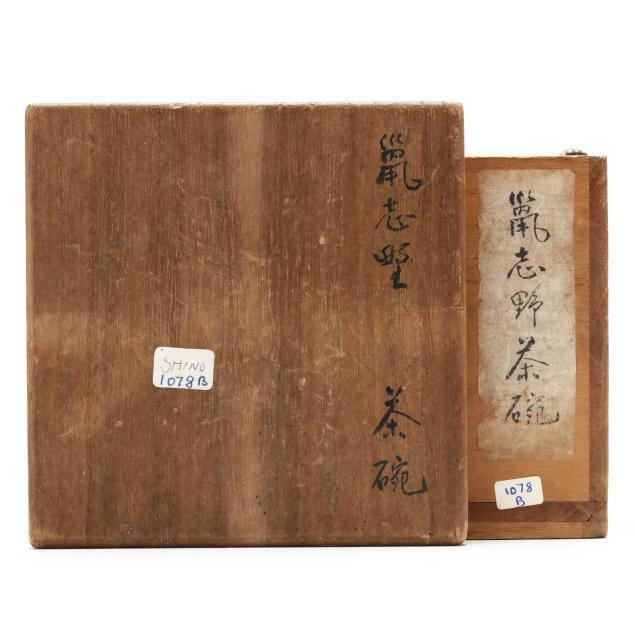 鼠志野 茶碗
SHINO
1078B
鼠志野茶碗
1078
B